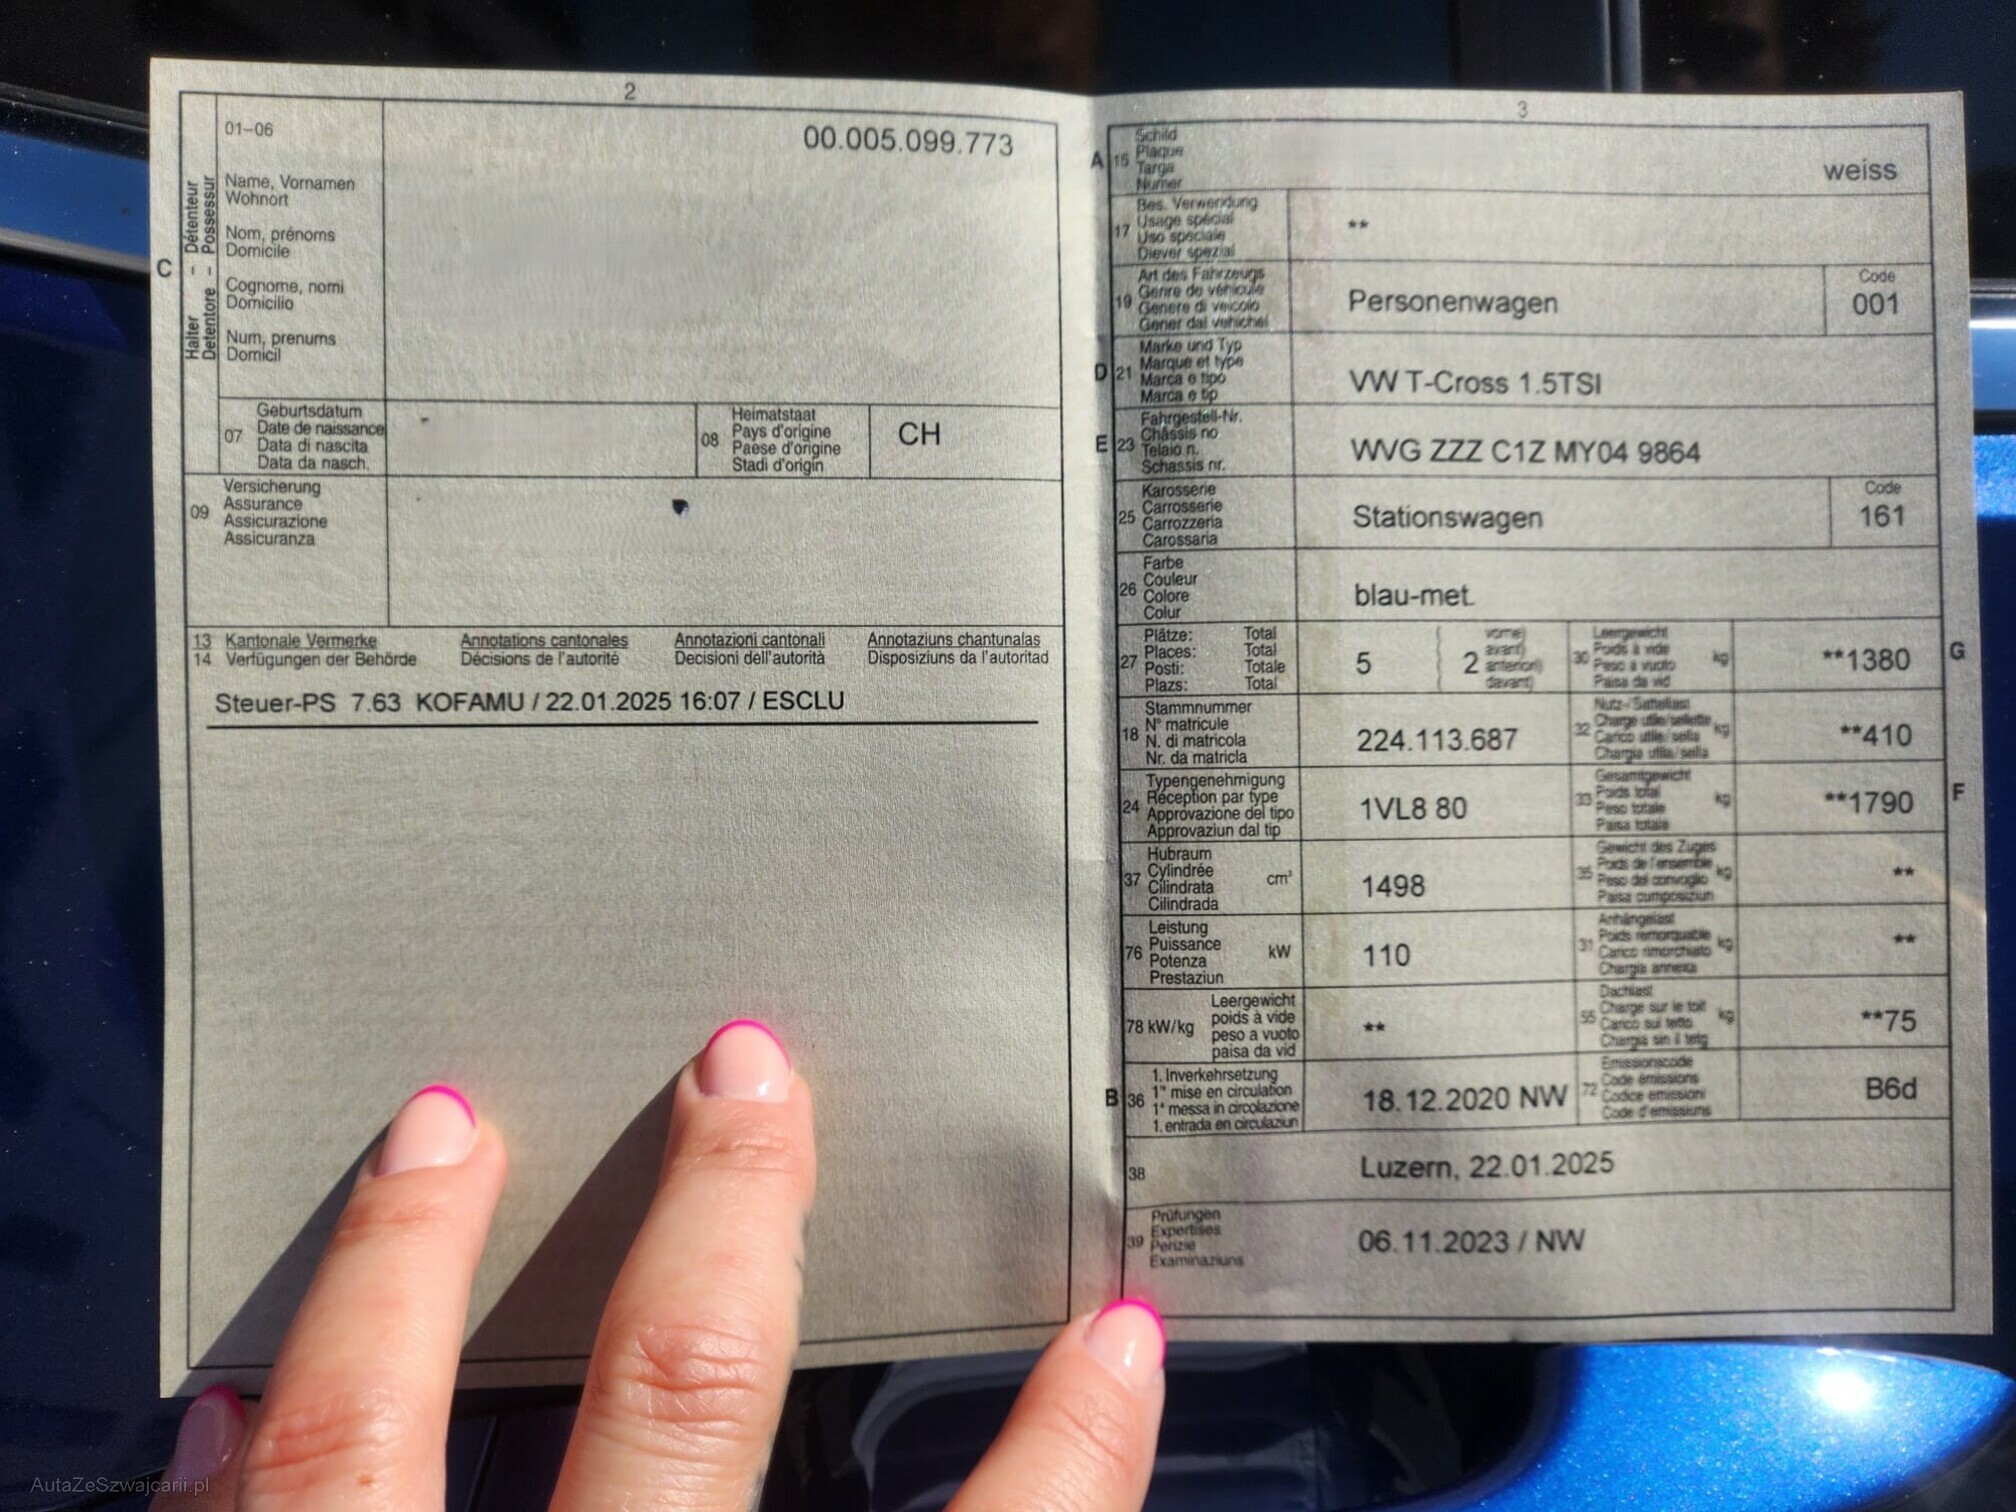 2
01–06
00.005.099.773
Halter – Détenteur
Detentore – Possessur
C
Name, Vornamen
Wohnort
Nom, prénoms
Domicile
Cognome, nomi
Domicilio
Num, prenums
Domicil
07
Geburtsdatum
Date de naissance
Data di nascita
Data da nasch.
08
Heimatstaat
Pays d'origine
Paese d'origine
Stadi d'origin
CH
09
Versicherung
Assurance
Assicurazione
Assicuranza
13 Kantonale Vermerke Annotations cantonales Annotazioni cantonali Annotaziuns chantunalas
14 Verfügungen der Behörde Décisions de l'autorité Decisioni dell'autorità Disposiziuns da l'autoritad
Steuer-PS 7.63 KOFAMU / 22.01.2025 16:07 / ESCLU
3
A 15
Schild
Plaque
Targa
Numer
weiss
17
Bes. Verwendung
Usage spécial
Uso speciale
Diever spezial
**
19
Art des Fahrzeugs
Genre de véhicule
Genere di veicolo
Gener dal vehichel
Personenwagen
Code
001
D 21
Marke und Typ
Marque et type
Marca e tipo
Marca e tip
VW T-Cross 1.5TSI
E 23
Fahrgestell-Nr.
Châssis no
Telaio n.
Schassis nr.
WVG ZZZ C1Z MY04 9864
25
Karosserie
Carrosserie
Carrozzeria
Carossaria
Stationswagen
Code
161
26
Farbe
Couleur
Colore
Colur
blau-met.
27
Plätze: Total
Places: Total
Posti: Totale
Plazs: Total
5
2
vorne)
avant)
anteriori)
davant)
30
Leergewicht
Poids à vide
Peso a vuoto
Paisa da vid
kg
**1380
G
18
Stammnummer
N° matricule
N. di matricola
Nr. da matricla
224.113.687
32
Nutz-/Sattellast
Charge utile/sellette
Carico utile/sella
Chargia utila/sella
kg
**410
24
Typengenehmigung
Réception par type
Approvazione del tipo
Approvaziun dal tip
1VL8 80
33
Gesamtgewicht
Poids total
Peso totale
Paisa totala
kg
**1790
F
37
Hubraum
Cylindrée
Cilindrata
Cilindrada
cm³
1498
35
Gewicht des Zuges
Poids de l'ensemble
Peso del convoglio
Paisa cumposiziun
kg
**
76
Leistung
Puissance
Potenza
Prestaziun
kW
110
31
Anhängelast
Poids remorquable
Carico rimorchiato
Chargia annexa
kg
**
78 kW/kg
Leergewicht
poids à vide
peso a vuoto
paisa da vid
**
55
Dachlast
Charge sur le toit
Carico sul tetto
Chargia sin il tetg
kg
**75
B 36
1. Inverkehrsetzung
1re mise en circulation
1a messa in circolazione
1. entrada en circulaziun
18.12.2020 NW
72
Emissionscode
Code émissions
Codice emissioni
Code d'emissiuns
B6d
38
Luzern, 22.01.2025
39
Prüfungen
Expertises
Perizie
Examinaziuns
06.11.2023 / NW
AutaZeSzwajcarii.pl